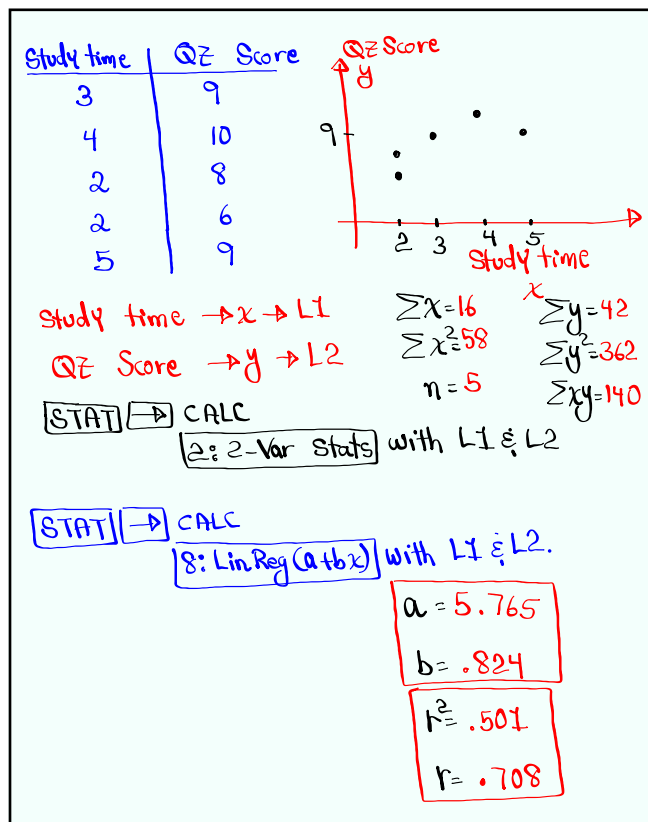 Study time | QZ Score
3 9
4 10
2 8
2 6
5 9
QZ Score
y
9
2 3 4 5
Study time
x
Study time → x → L1
QZ Score → y → L2
Σx=16 Σy=42
Σx²=58 Σy²=362
n=5 Σxy=140
STAT → CALC
2: 2-Var Stats with L1 & L2
STAT → CALC
8: LinReg(a+bx) with L1 & L2.
a = 5.765
b = .824
r² = .501
r = .708